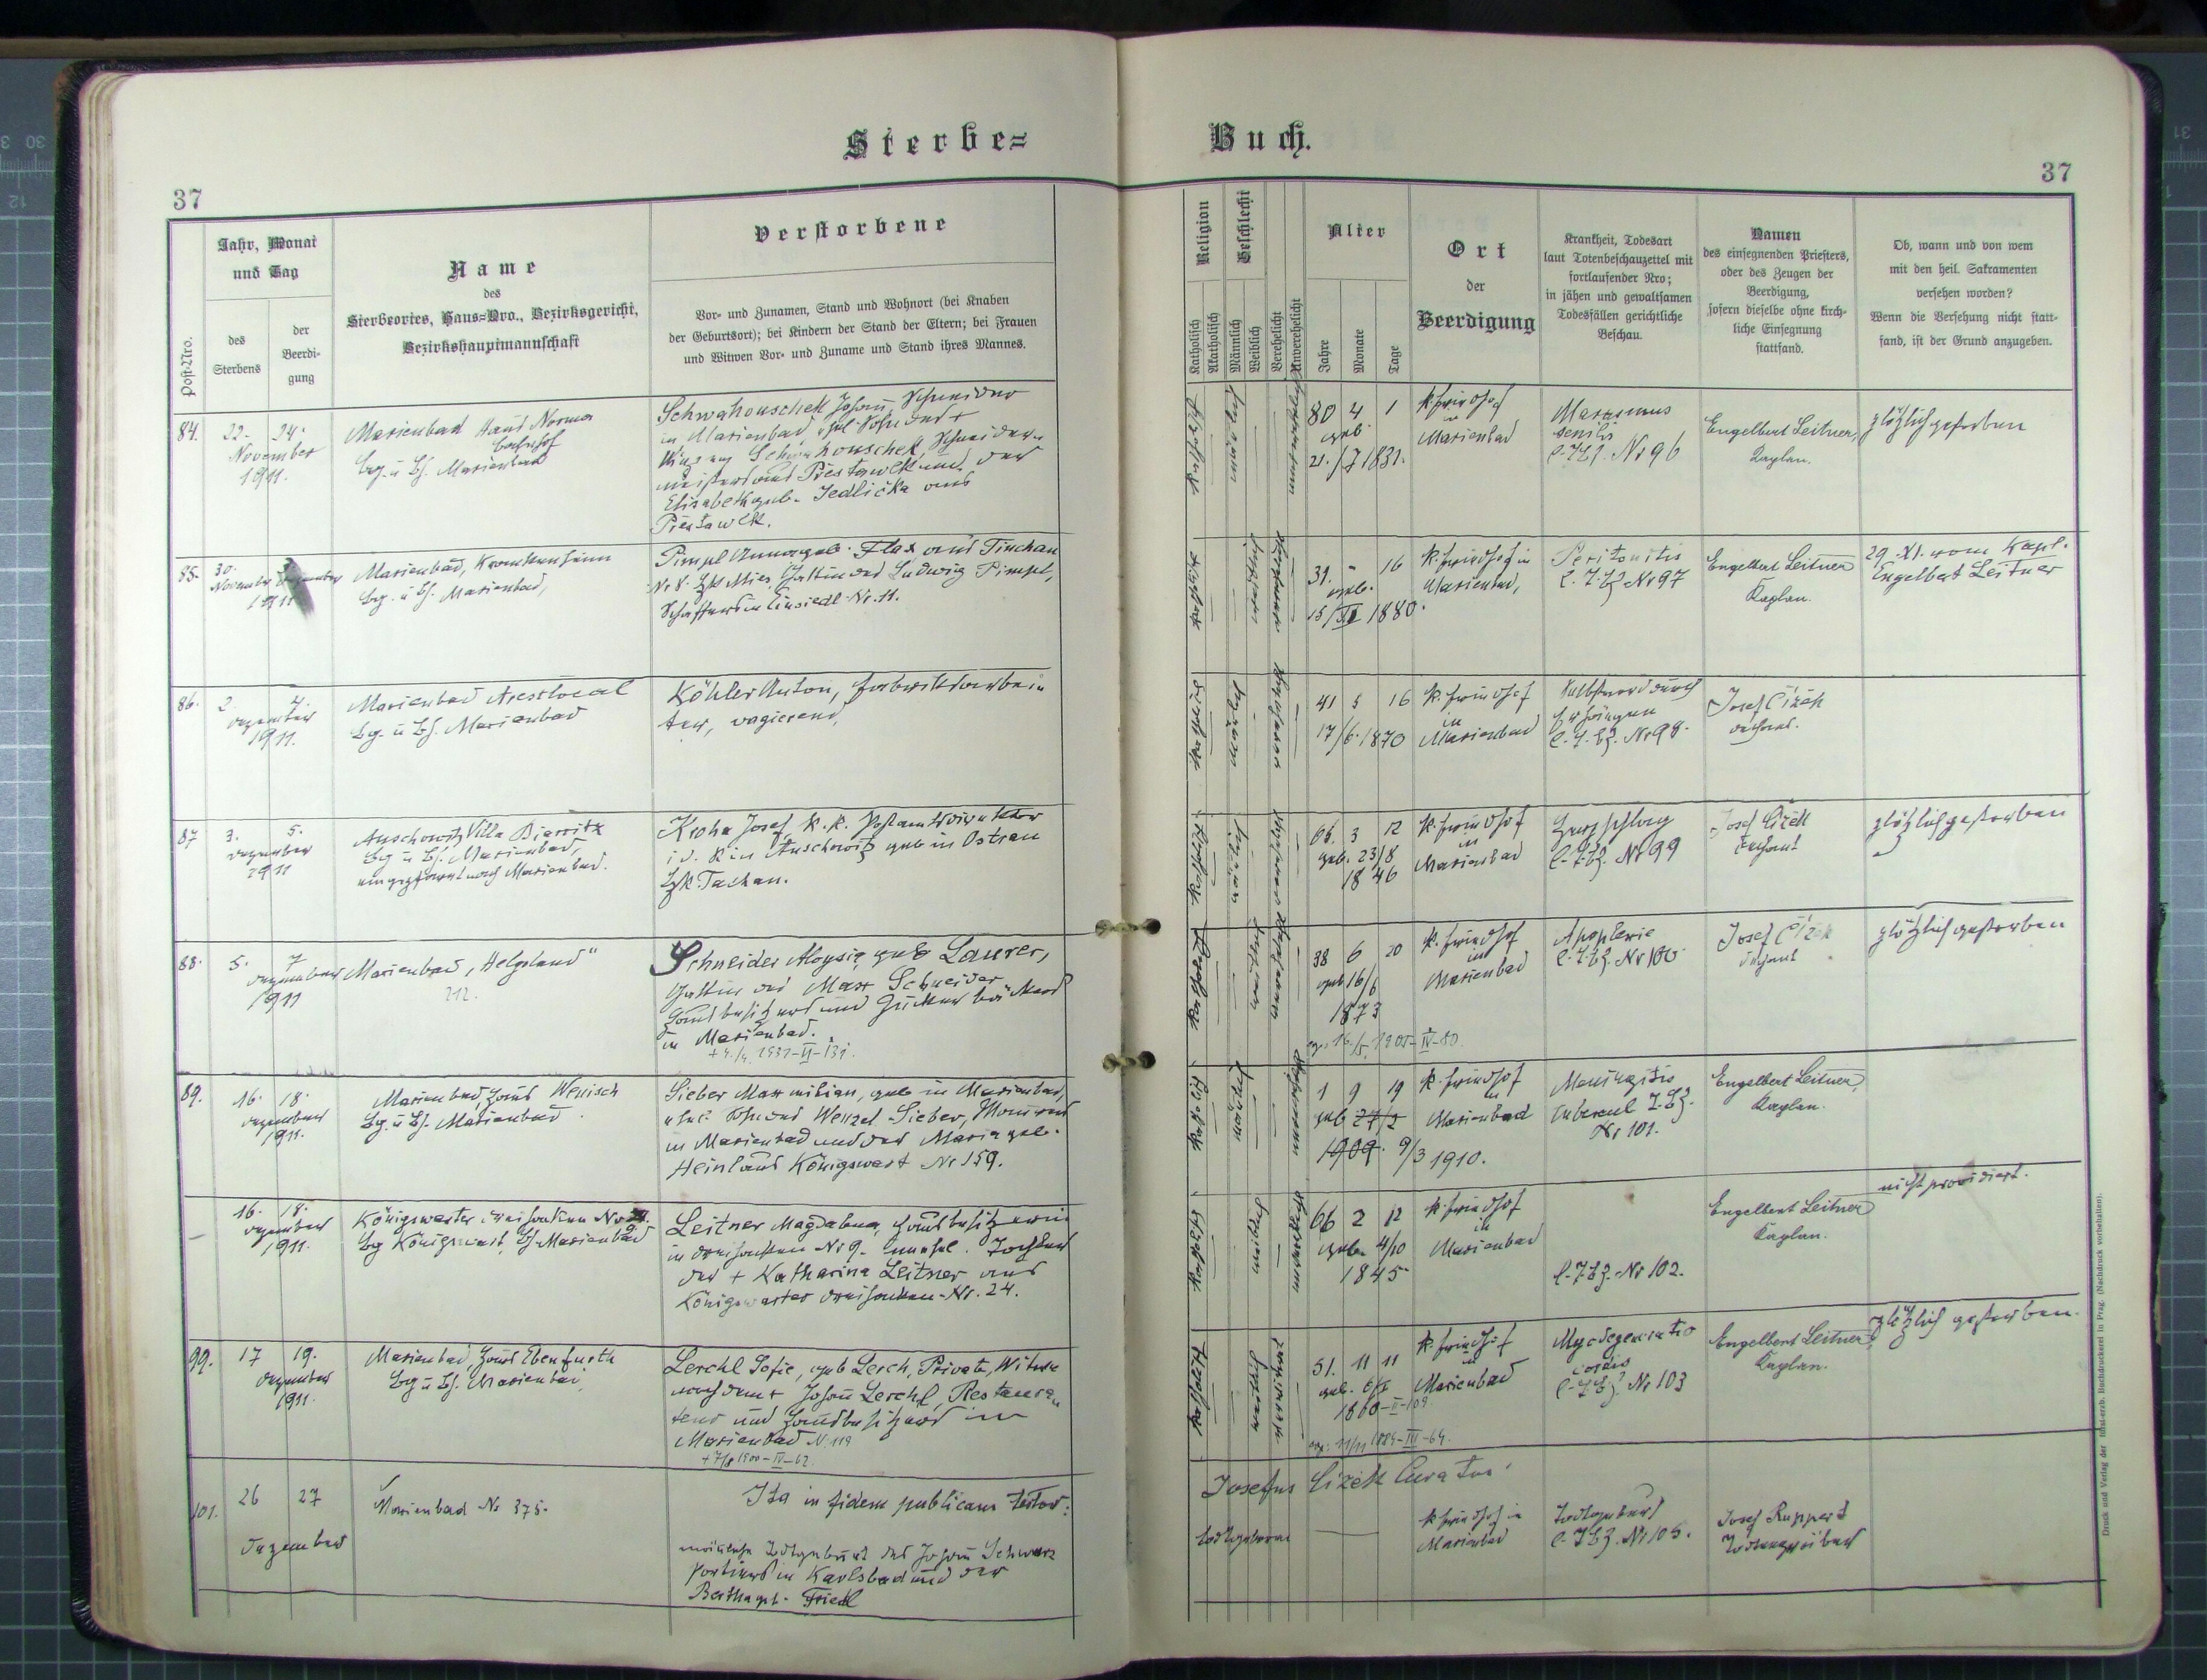 Sterbe-
Buch.
37
37
Post-Nro.
Jahr, Monat
und Tag
des
Sterbens
der
Beerdi-
gung
Name
des
Sterbeortes, Haus-Nro., Bezirksgericht,
Bezirkshauptmannschaft
Verstorbene
Vor- und Zunamen, Stand und Wohnort (bei Knaben
der Geburtsort); bei Kindern der Stand der Eltern; bei Frauen
und Witwen Vor- und Zuname und Stand ihres Mannes.
Religion
Katholisch
Akatholisch
Geschlecht
Männlich
Weiblich
Verehelicht
Unverehelicht
Alter
Jahre
Monate
Tage
Ort
der
Beerdigung
Krankheit, Todesart
laut Totenbeschauzettel mit
fortlaufender Nro;
in jähen und gewaltsamen
Todesfällen gerichtliche
Beschau.
Namen
des einsegnenden Priesters,
oder des Zeugen der
Beerdigung,
sofern dieselbe ohne kirch-
liche Einsegnung
stattfand.
Ob, wann und von wem
mit den heil. Sakramenten
versehen worden?
Wenn die Versehung nicht statt-
fand, ist der Grund anzugeben.
84.
22. 24.
November
1911.
Marienbad Haus Norma
Bahnhof
Bg. u Bh. Marienbad
Schwahouschek Johann, Schneider
in Marienbad, ehel. Sohn des +
Schwahouschek, Schneider-
meisters aus und der
Elisabeth geb. Jedlička aus
katholisch
80 4 1
geb.
21./7 1831.
k. Friedhof
in
Marienbad
Marasmus
senilis
l. T.B.Z. Nr 96
Engelbert Leitner,
Kaplan.
plötzlich gestorben
85.
30.
November Dezember
1911
Marienbad, Krankenheim
Bg. u Bh. Marienbad,
Pimpl Anna geb. Flax aus Tinchau
Nr 8. Bzk Mies, Gattin des Ludwig Pimpl,
Schaffers in Einsiedl Nr. 11.
katholisch
31. - 16
geb.
15/XI 1880.
k. Friedhof in
Marienbad,
Peritonitis
l. T.B.Z. Nr 97
Engelbert Leitner
Kaplan.
29. XI. vom Kapl.
Engelbert Leitner
86.
2. 4.
Dezember
1911.
Marienbad Arestlocal
Bg. u Bh. Marienbad
Köhler Anton, Fabriksarbei-
ter, vagierend,
katholisch
41 5 16
17/6. 1870
k. Friedhof
in
Marienbad
Selbstmord durch
Erhängen
l. T.B.Z. Nr 98.
Josef Čížek
Dechant.
87
3. 5.
Dezember
1911
Auschowitz Villa Biarritz
Bg u Bh. Marienbad,
eingepfarrt nach Marienbad.
Kroha Josef, k. k. Postamtsdirektor
i. d. R in Auschowitz geb in Ostrau
Bzk. Tachau.
katholisch
65. 3 12
geb. 23/8
1846
k. Friedhof
in
Marienbad
Herzschlag
l. T.B.Z. Nr 99
Josef Čížek
Dechant
plötzlich gestorben
88.
5. 7
Dezember
1911
Marienbad, „Helgoland"
212.
Schneider Aloysia geb Laurer,
Gattin des Max Schneider
Hausbesitzers und
in Marienbad.
katholisch
38 6 20
geb 16/6
1873
k. Friedhof
in
Marienbad
Apoplexie
l. T.B.Z. Nr 100
Josef Čížek
Dechant
plötzlich gestorben
89.
16. 18.
Dezember
1911.
Marienbad, Haus Wenisch
Bg. u Bh. Marienbad
Sieber Maxmilian, geb in Marienbad,
ehel. Sohn des Wenzel Sieber, Maurers
in Marienbad und der Maria geb.
Heinl aus Königswart Nr 159.
katholisch
1 9 19
geb 27/2
1909. 9/3 1910.
k. Friedhof
in
Marienbad
Meningitis
tubercul T.B.Z.
Nr 101.
Engelbert Leitner,
Kaplan.
–
16. 18.
Dezember
1911.
Königswarter Dreihacken Nr 9.
Bg Königswart, Bh Marienbad
Leitner Magdalena, Hausbesitzerin
in Dreihacken Nr 9. unehel. Tochter
der + Katharina Leitner aus
Königswarter Dreihacken Nr. 24.
katholisch
66 2 12
geb. 4/10
1845
k. Friedhof
in
Marienbad
l. T.B.Z. Nr 102.
Engelbert Leitner
Kaplan.
nicht providiert.
99.
17 19.
Dezember
1911.
Marienbad, Haus Ebenfurth
Bg u Bh. Marienbad
Lerchl Sofie, geb Lerch, Private, Witwe
nach dem + Johann Lerchl, Restaura-
teurs und Hausbesitzers in
Marienbad N. 119
katholisch
51. 11 11
1860-II-109.
k. Friedhof
in
Marienbad
Myodegeneratio
cordis
l. T.B.Z. Nr 103
Engelbert Leitner,
Kaplan.
plötzlich gestorben.
Ita in fidem publicam testor:
Josefus Čížek Curatus
101.
26 27
Dezember
Marienbad Nr 375.
männliche Todtgeburt des Johann Schwarz
Portiers in Karlsbad und der
Bertha geb. Friedl
todtgeboren
k Friedhof in
Marienbad
Todtgeburt
l. T.B.Z. Nr 105.
Josef Ruppert
Todtengräber
Druck und Verlag der fürst-erzb. Buchdruckerei in Prag. (Nachdruck vorbehalten.